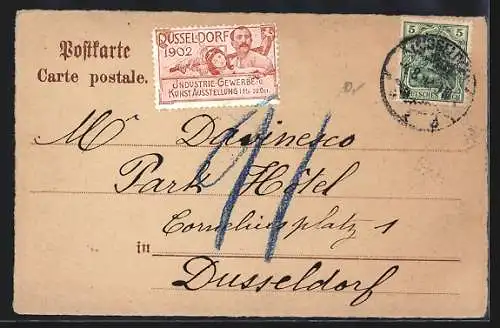 Postkarte
Carte postale.
DÜSSELDORF
1902
INDUSTRIE-GEWERBE-U
KUNST AUSSTELLUNG
5 5
Mr Davinesco
Park Hôtel
Corneliusplatz 1
in
Dusseldorf